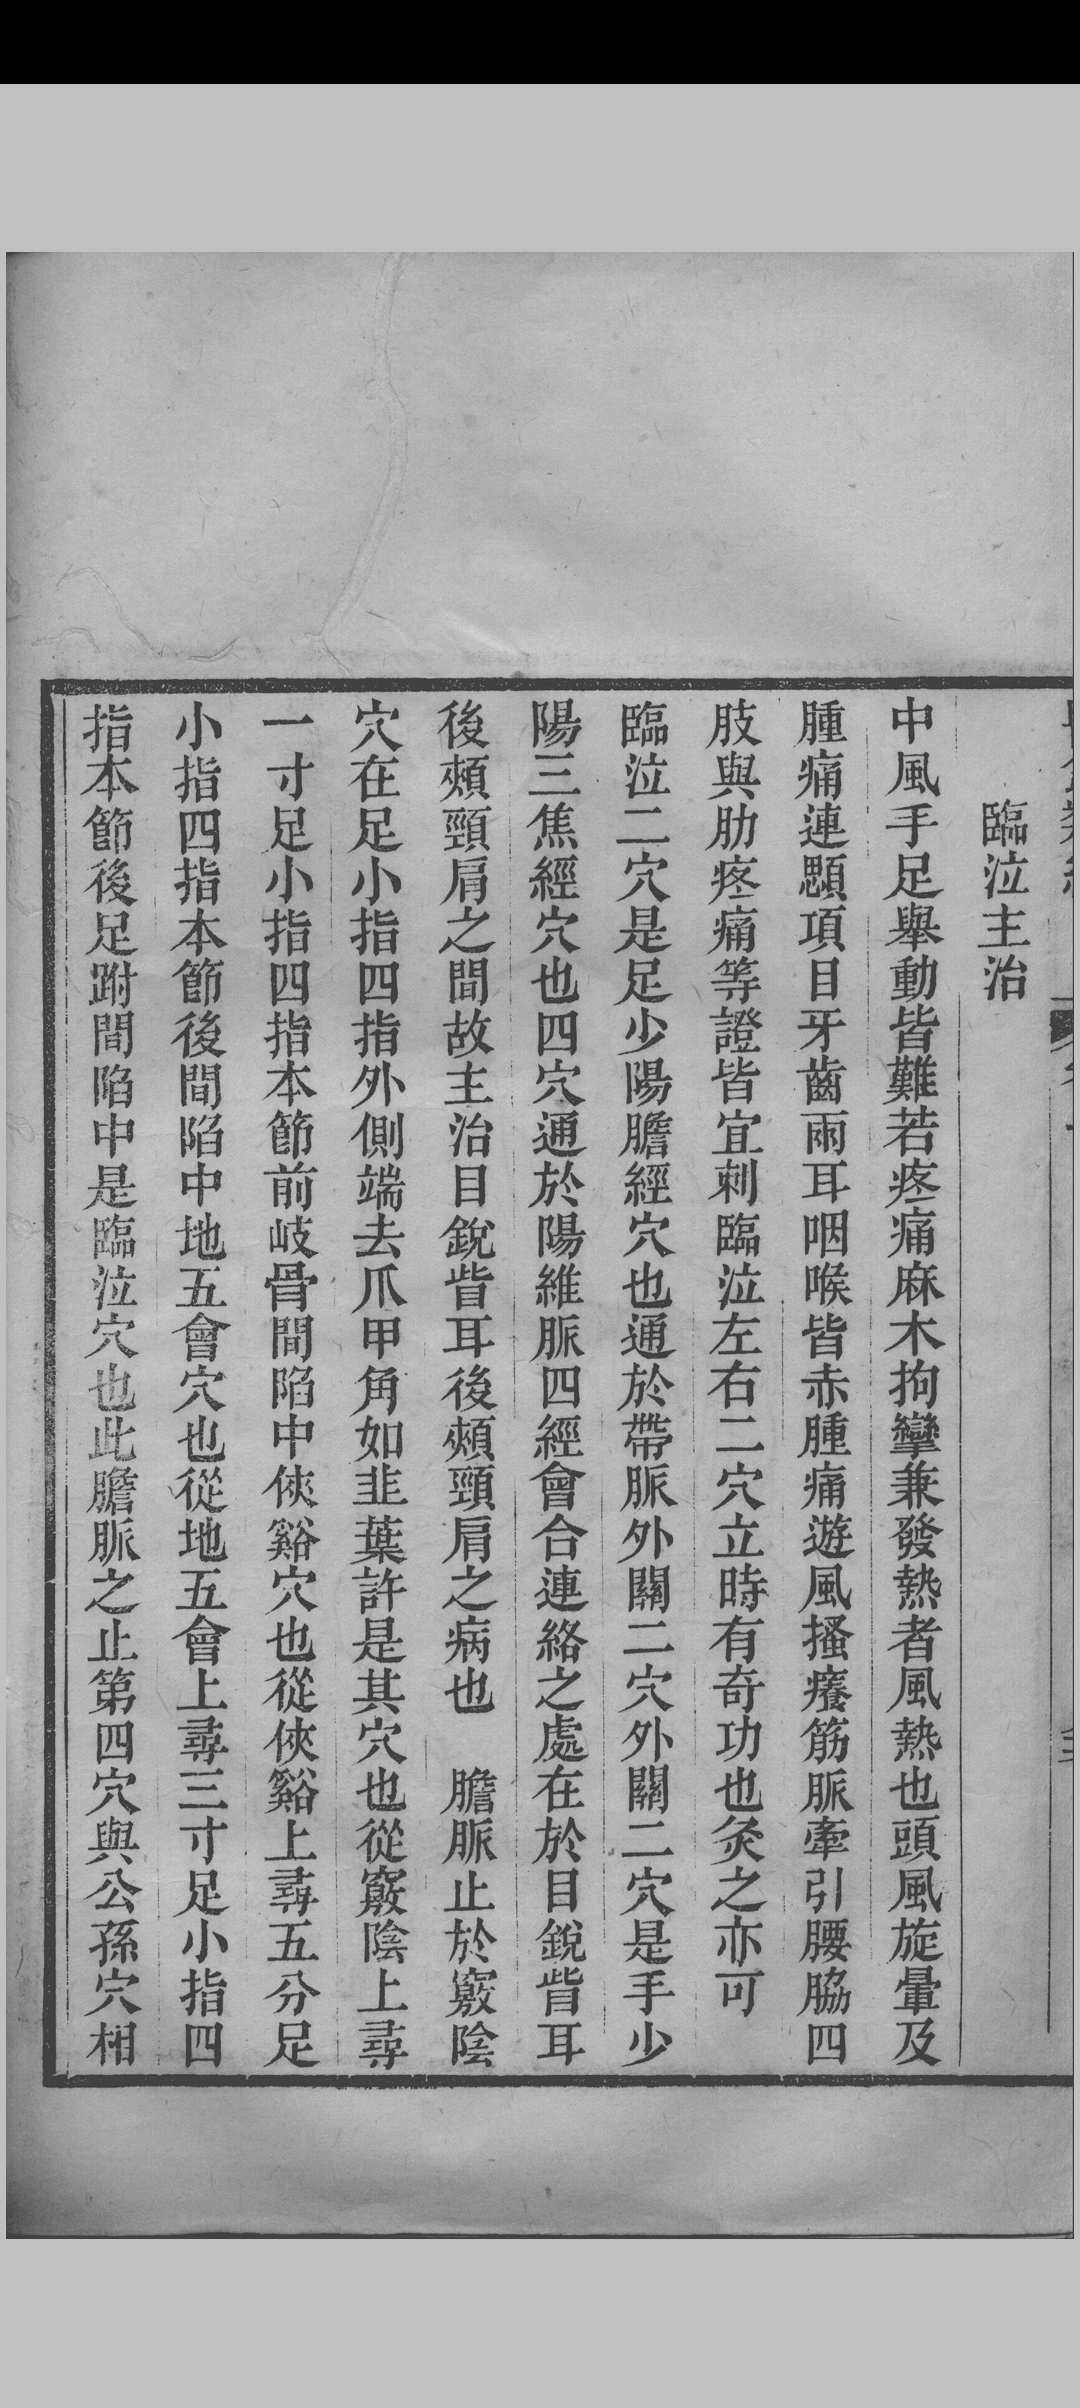 臨泣主治
中風手足舉動皆難若疼痛麻木拘攣兼發熱者風熱也頭風旋暈及
腫痛連顋項目牙齒兩耳咽喉皆赤腫痛遊風搔癢筋脈牽引腰脇四
肢與肋疼痛等證皆宜刺臨泣左右二穴立時有奇功也灸之亦可
臨泣二穴是足少陽膽經穴也通於帶脈外關二穴外關二穴是手少
陽三焦經穴也四穴通於陽維脈四經會合連絡之處在於目銳眥耳
後頰頸肩之間故主治目銳眥耳後頰頸肩之病也　膽脈止於竅陰
穴在足小指四指外側端去爪甲角如韭葉許是其穴也從竅陰上尋
一寸足小指四指本節前岐骨間陷中俠谿穴也從俠谿上尋五分足
小指四指本節後間陷中地五會穴也從地五會上尋三寸足小指四
指本節後足跗間陷中是臨泣穴也此膽脈之止第四穴與公孫穴相